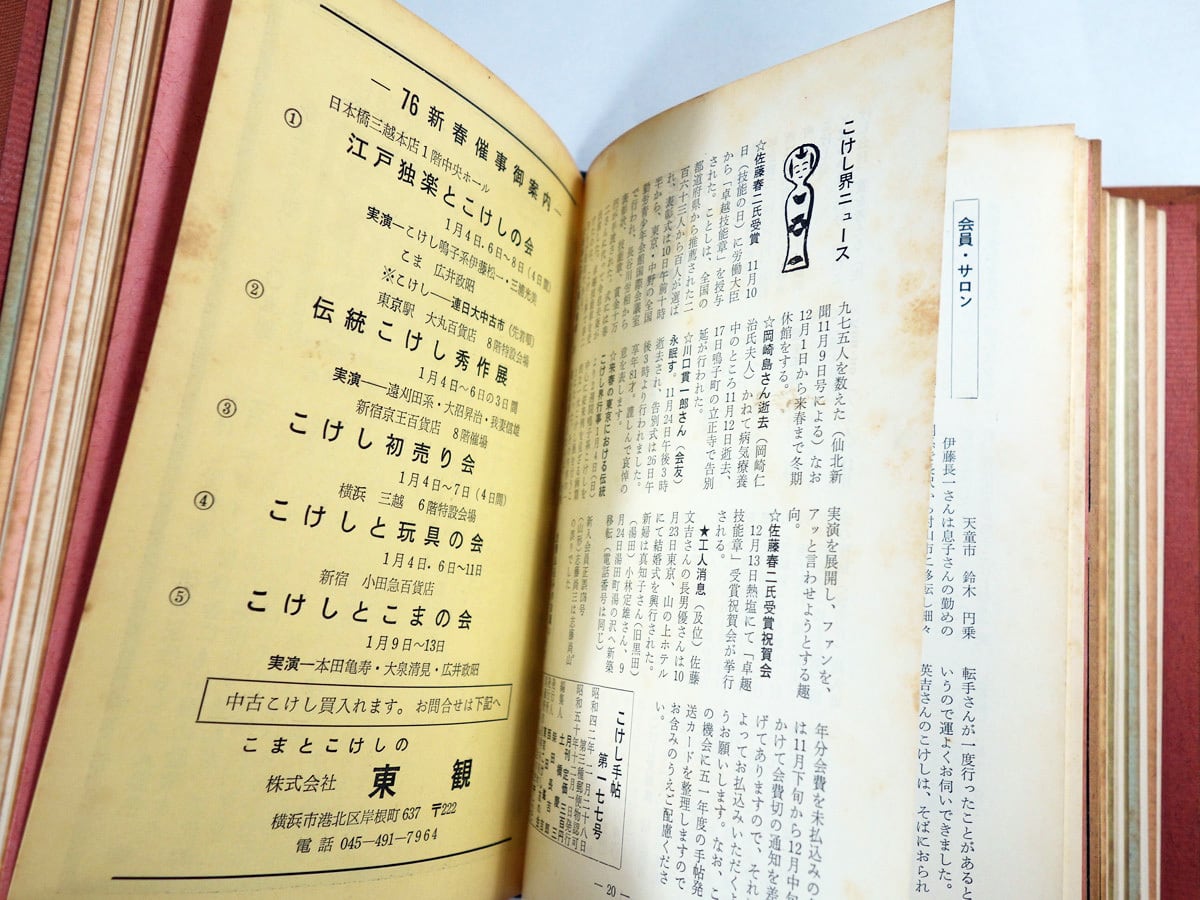 — 76新春催事御案内 —
①
日本橋三越本店1階中央ホール
江戸独楽とこけしの会
1月4日.6日〜8日(4日間)
実演―こけし鳴子系伊藤松一・三浦光美
こま 広井政昭
※こけし――連日大中古市(先着順)
②
東京駅 大丸百貨店 8階特設会場
伝統こけし秀作展
1月4日〜6日の3日間
実演――遠刈田系・大沼昇治・我妻信雄
③
新宿京王百貨店 8階催場
こけし初売り会
1月4日〜7日(4日間)
④
横浜 三越 6階特設会場
こけしと玩具の会
1月4日.6日〜11日
⑤
新宿 小田急百貨店
こけしとこまの会
1月9日〜13日
実演―本田亀寿・大泉清見・広井政昭
中古こけし買入れます。お問合せは下記へ
こまとこけしの
株式会社 東観
横浜市港北区岸根町637 〒222
電話 045-491-7964
こけし界ニュース
☆佐藤春二氏受賞 11月10
日(技能の日)に労働大臣
から「卓越技能章」を授与
された。ことしは、全国の
都道府県から推薦された二
百六十三人から百人が選ば
れ、表彰式は10日午前十時
半から、東京・中野の全国
勤労青少年会館国際会議室
で行われ、長谷川労相から
表彰状、技能章、賞金十万
九七五人を数えた(仙北新
聞11月9日号による)なお
12月1日から来春まで冬期
休館をする。
☆岡崎島さん逝去(岡崎仁
治氏夫人)かねて病気療養
中のところ11月12日逝去、
17日鳴子町の立正寺で告別
延が行われた。
☆川口貫一郎さん(会友)
永眠す。11月24日午後3時
逝去され、告別式は26日午
後3時より行われました。
享年81才。謹しんで哀悼の
意を表します。
☆来春の東京における伝統
こけし界行事 1月4日(日)
実演を展開し、ファンを、
アッと言わせようとする趣
向。
☆佐藤春二氏受賞祝賀会
12月13日熱塩にて「卓越
技能章」受賞祝賀会が挙行
される。
★工人消息(及位)佐藤
文吉さんの長男優さんは10
月23日東京、山の上ホテル
にて結婚式を興行された。
新婦は真知子さん(旧黒田)
(湯田)小林定雄さん、9
月24日湯田町湯の沢へ新築
移転(電話番号は同じ)
年分会費を未払込みの
は11月下旬から12月中旬
かけて会費切の通知を差
げてありますので、それ
よってお払込みいただくよ
うお願いします。なお、こ
の機会に五一年度の手帖発
送カードを整理しますので
お含みのうえご配慮くださ
い。
こけし手帖
第一七七号
昭和四二年二月二十八日
第三種郵便物認可
昭和五十年十二月一日発行
月刊 定価 三百円
— 20 —
会員・サロン
天童市 鈴木 円乗
伊藤長一さんは息子さんの勤めの
転手さんが一度行ったことがあると
いうので運よくお伺いできました。
英吉さんのこけしは、そばにおられ